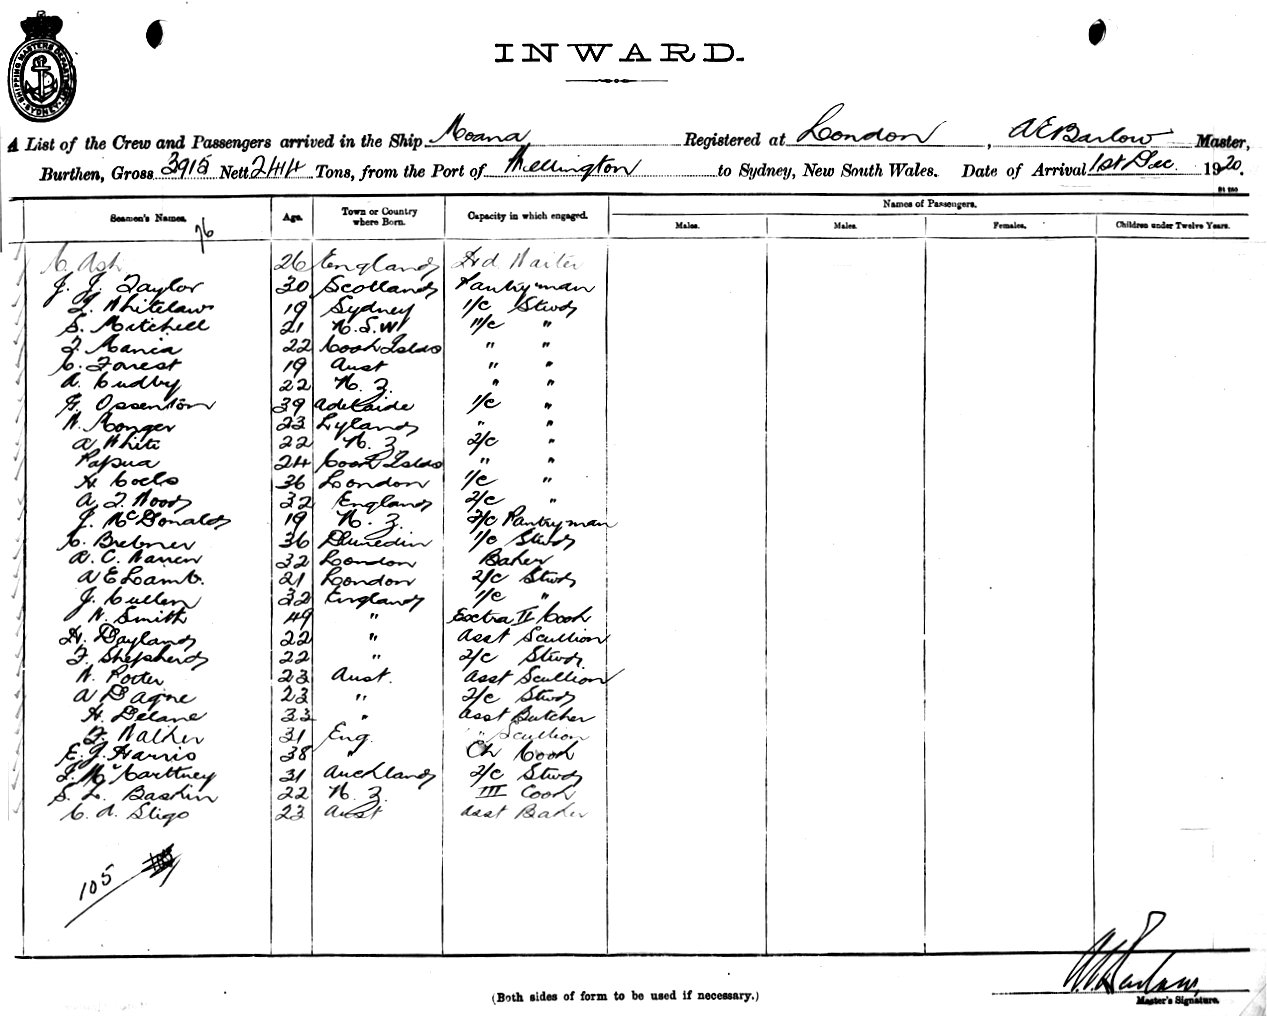 SHIPPING MASTERS DEPARTMENT SYDNEY
INWARD.
A List of the Crew and Passengers arrived in the Ship Moana Registered at London, A E Barlow Master,
Burthen, Gross 3915 Nett 2414 Tons, from the Port of Wellington to Sydney, New South Wales. Date of Arrival 1st Dec. 1920.
Seamen's Names. Age. Town or Country where Born. Capacity in which engaged. Names of Passengers.
Males. Males. Females. Children under Twelve Years.
76
C. Ash 26 England Hd Waiter
J. J. Taylor 30 Scotland Pantryman
Whitelaw 19 Sydney 1/c Stwd
S. Mitchell 21 N.S.W 1/c "
Mania 22 Cook Islds " "
C. Forrest 19 Aust " "
A. Cudby 22 N. Z. " "
Ossenton 39 Adelaide 1/c "
W. Monger 23 " "
A White 22 N. Z 2/c "
Papua 24 Cook Islds " "
H. Cocks 36 London 1/c "
A. F. Wood 32 England 2/c "
J. McDonald 19 N. Z. 2/c Pantryman
C. Brebner 36 Dunedin 1/c Stwd
W. C. Warren 32 London Baker
A E Lamb. 21 London 2/c Stwd
J. Cullen 32 England 1/c "
W. Smith 49 " Extra II Cook
H. Dayland 22 " Asst Scullion
F. Shepherd 22 " 2/c Stwd.
W. Potter 23 Aust. Asst Scullion
A D'agne 23 " 2/c Stwd
H. Delane 33 " Asst Butcher
F. Walker 31 Eng. " Scullion
E. J. Harris 38 " Ch Cook
J. McCarttney 31 Auckland 2/c Stwd
S. L. Baskin 22 N. Z. III Cook
C. A. Sligo 23 Aust Asst Baker
105
(Both sides of form to be used if necessary.)
A E Barlow.
Master's Signature.